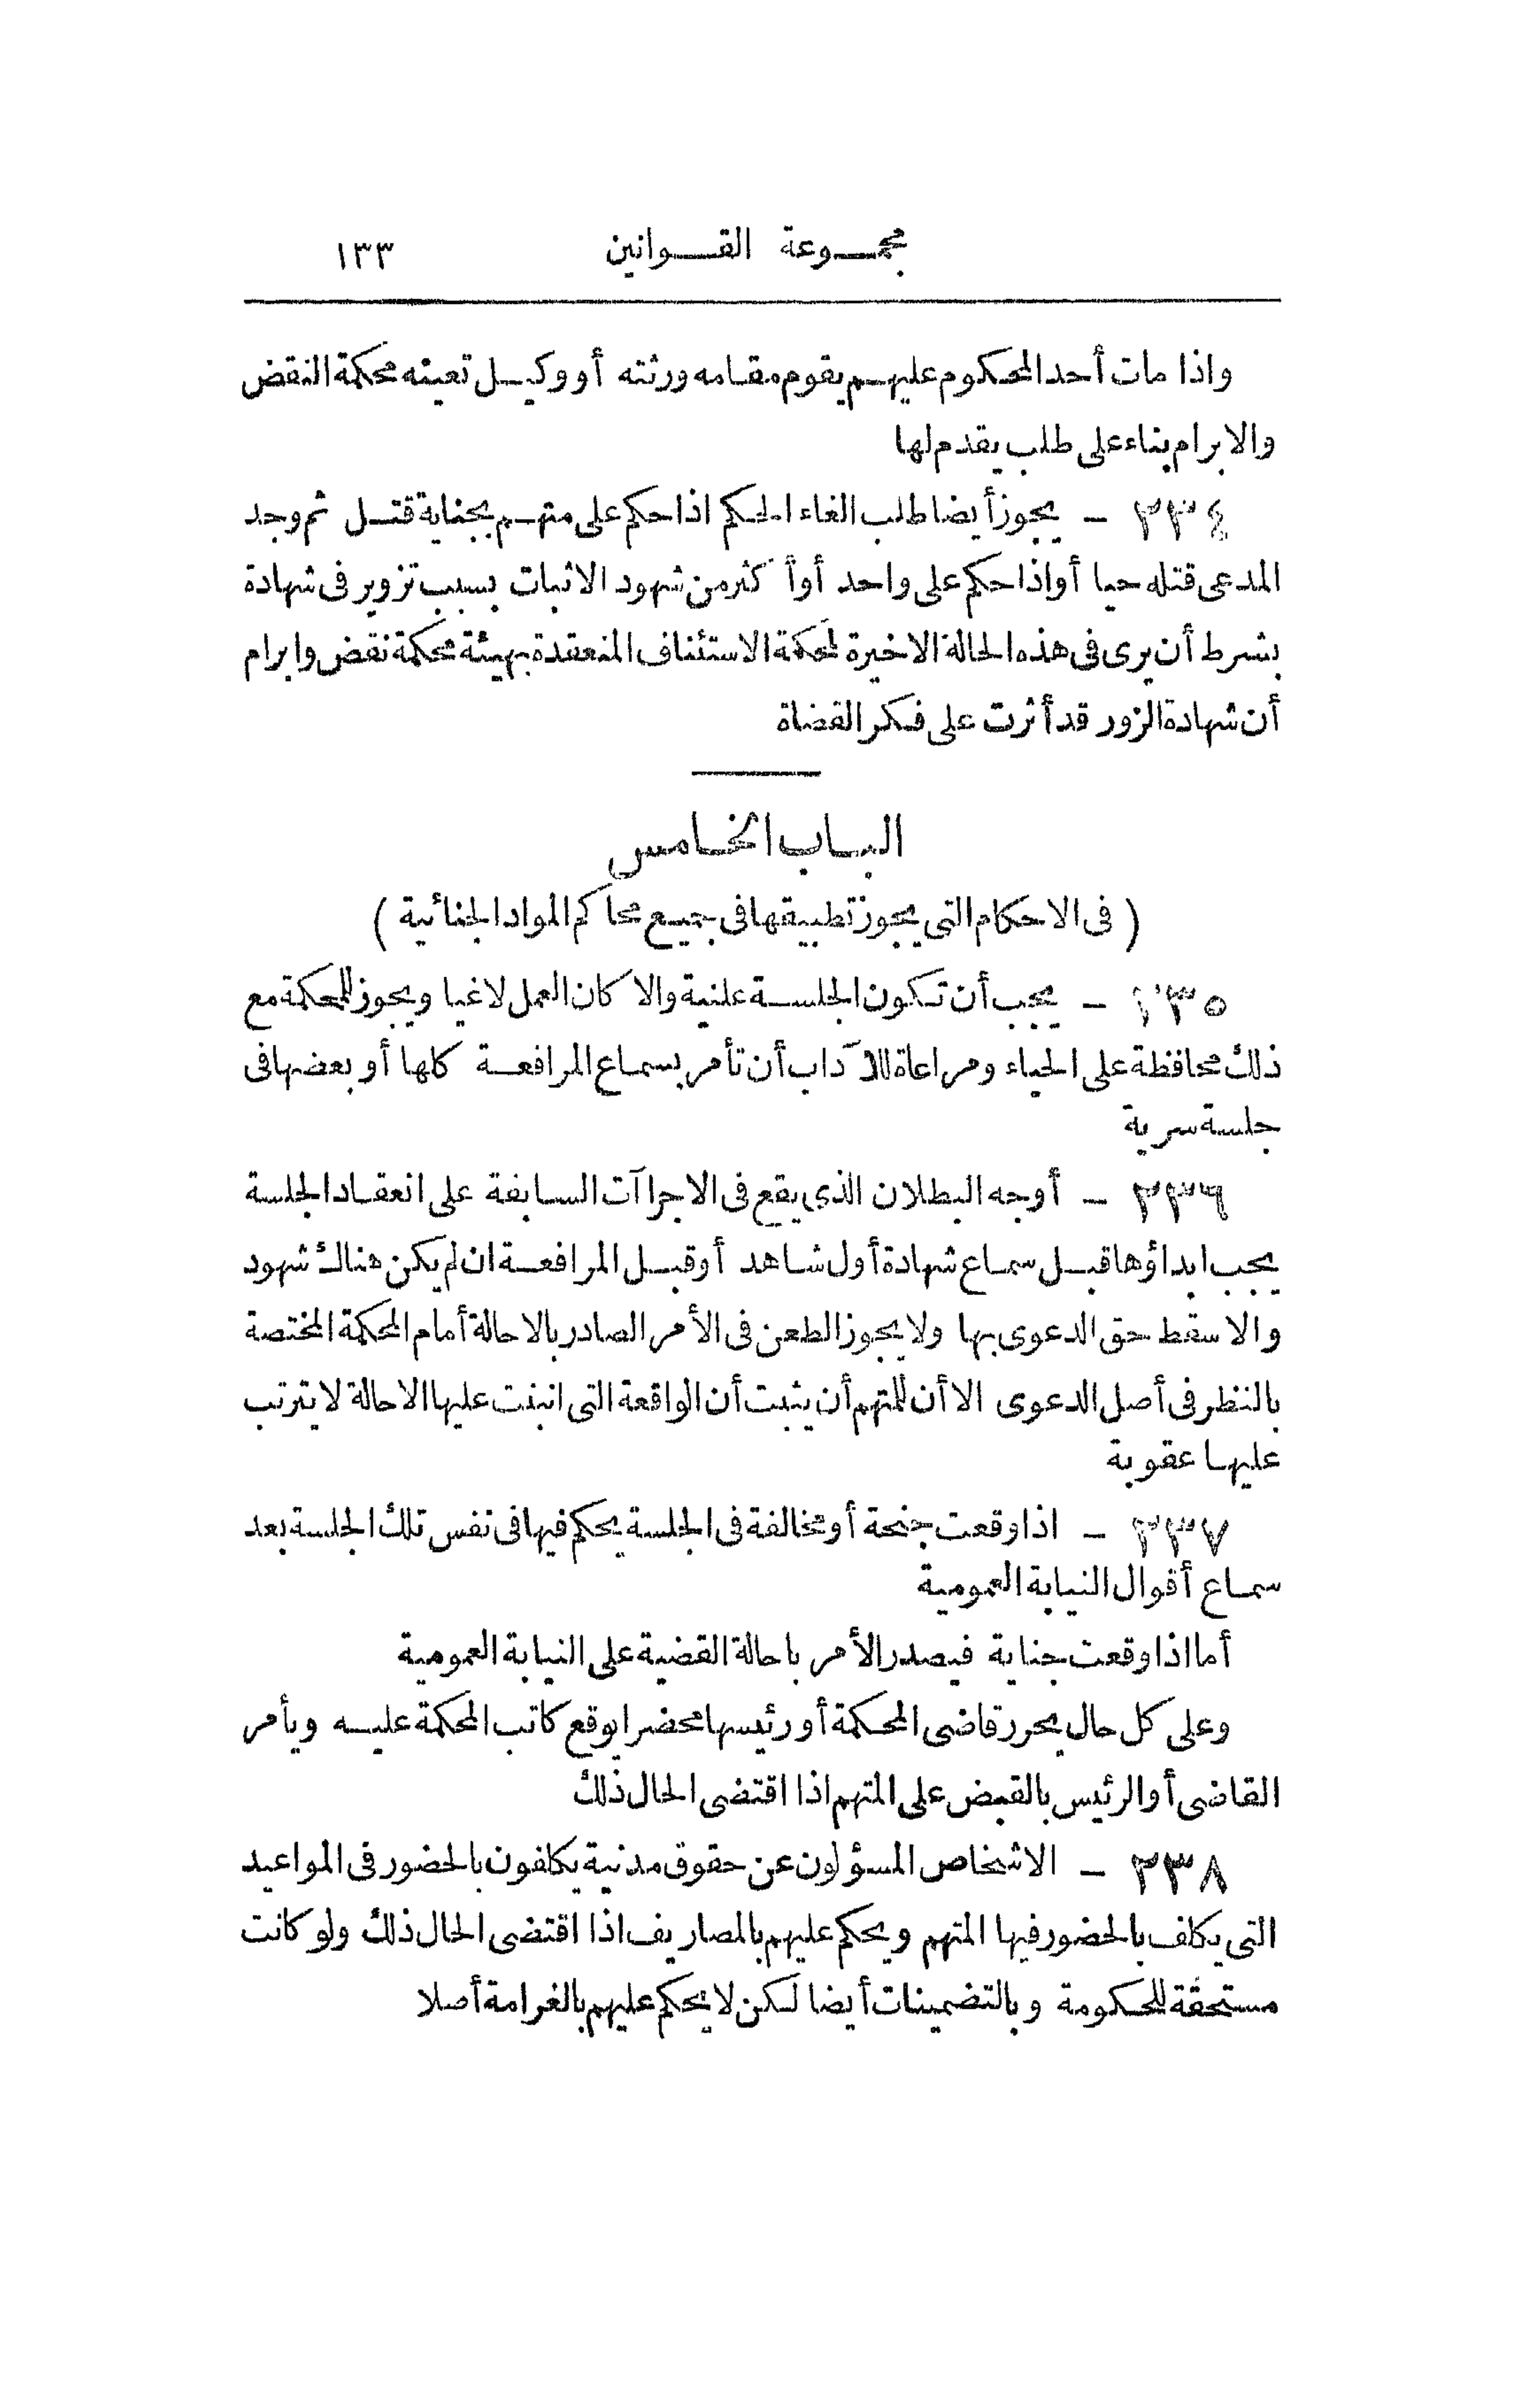 مجموعة القوانين ١٣٣
واذا مات أحد المحكوم عليهم يقوم مقامه ورثته أو وكيل تعينه محكمة النقض
والابرام بناء على طلب يقدم لها
٢٣٤ - يجوز أيضا طلب الغاء الحكم اذا حكم على متهم بجناية قتل ثم وجد
المدعى قتله حيا أو اذا حكم على واحد أو أكثر من شهود الاثبات بسبب تزوير فى شهادة
بشرط أن يرى فى هذه الحالة الاخيرة لمحكمة الاستئناف المنعقدة بهيئة محكمة نقض وابرام
أن شهادة الزور قد أثرت على فكر القضاة
الباب الخامس
( فى الاحكام التى يجوز تطبيقها فى جميع محاكم المواد الجنائية )
٢٣٥ - يجب أن تكون الجلسة علنية والا كان العمل لاغيا ويجوز للمحكمة مع
ذلك محافظة على الحياء ومراعاة للآداب أن تأمر بسماع المرافعة كلها أو بعضها فى
جلسة سرية
٢٣٦ - أوجه البطلان الذى يقع فى الاجراآت السابقة على انعقاد الجلسة
يجب ابداؤها قبل سماع شهادة أول شاهد أو قبل المرافعة ان لم يكن هناك شهود
والا سقط حق الدعوى بها ولا يجوز الطعن فى الأمر الصادر بالاحالة أمام المحكمة المختصة
بالنظر فى أصل الدعوى الا أن للمتهم أن يثبت أن الواقعة التى انبنت عليها الاحالة لا يترتب
عليها عقوبة
٢٣٧ - اذا وقعت جنحة أو مخالفة فى الجلسة يحكم فيها فى نفس تلك الجلسة بعد
سماع أقوال النيابة العمومية
أما اذا وقعت جناية فيصدر الأمر باحالة القضية على النيابة العمومية
وعلى كل حال يحرر قاضى المحكمة أو رئيسها محضرا يوقع كاتب المحكمة عليه ويأمر
القاضى أو الرئيس بالقبض على المتهم اذا اقتضى الحال ذلك
٢٣٨ - الاشخاص المسؤلون عن حقوق مدنية يكلفون بالحضور فى المواعيد
التى يكلف بالحضور فيها المتهم ويحكم عليهم بالمصاريف اذا اقتضى الحال ذلك ولو كانت
مستحقة للحكومة وبالتضمينات أيضا لكن لا يحكم عليهم بالغرامة أصلا